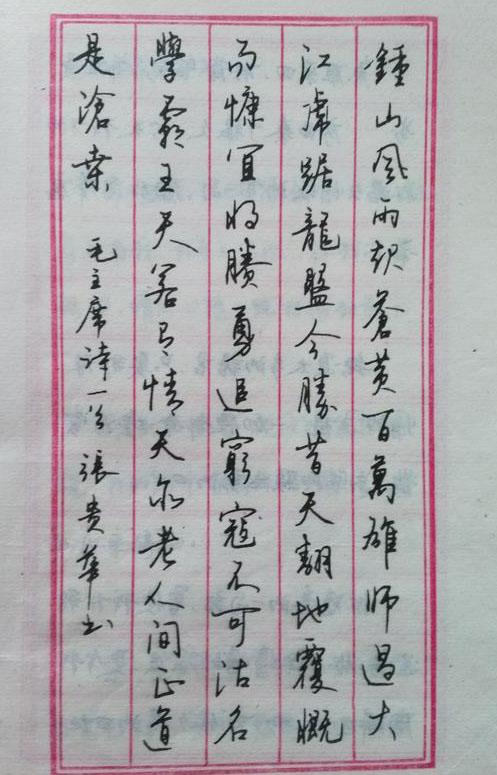 鍾山風雨起蒼黃百萬雄師過大
江虎踞龍盤今勝昔天翻地覆慨
而慷宜將賸勇追窮寇不可沽名
學霸王天若有情天亦老人間正道
是滄桒 毛主席詩一首 張贵華书